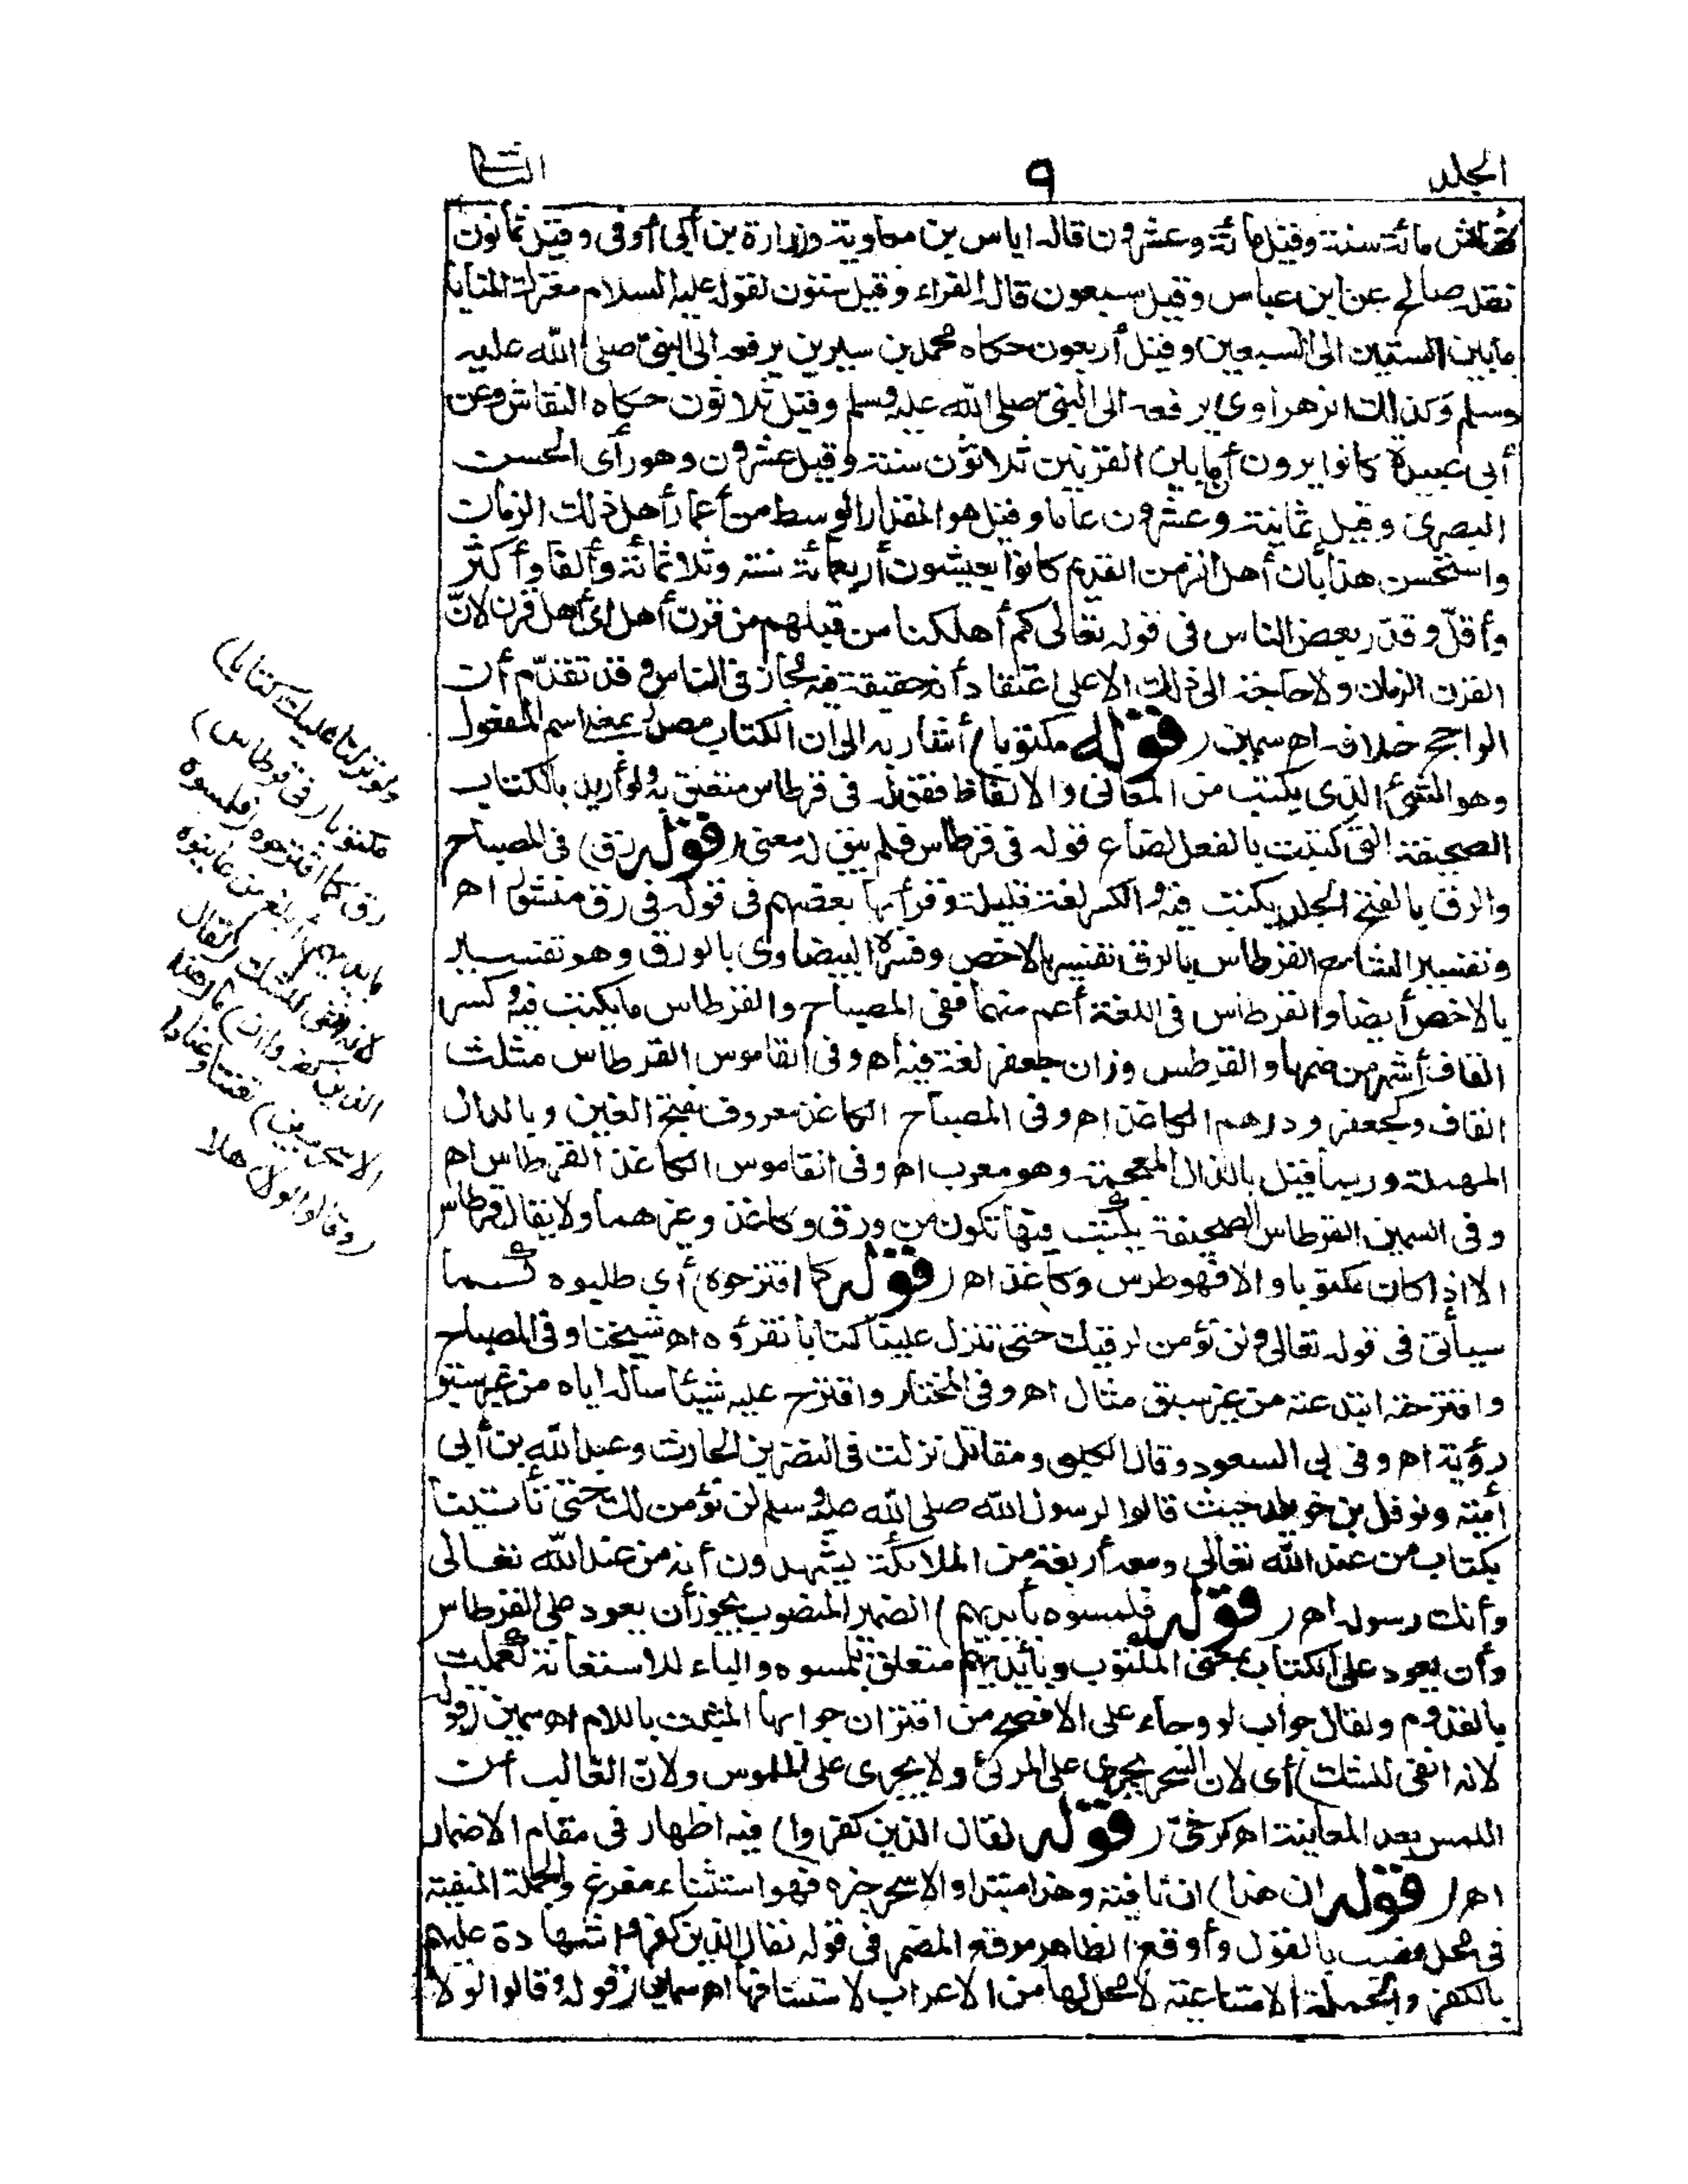 الجلد ٩ الثانى
مائة سنة وقيل مائة وعشرون قاله اياس بن معاوية وزرارة بن أبى أوفى وقيل ثمانون
نقله صالح عن ابن عباس وقيل سبعون قاله الفراء وقيل ستون لقوله عليه السلام معترك المنايا
مابين الستين الى السبعين وقيل أربعون حكاه محمد بن سيرين يرفعه الى النبىّ صلى الله عليه
وسلم وكذلك الزهراوى يرفعه الى النبىّ صلى الله عليه وسلم وقيل ثلاثون حكاه النقاش وعن
أبى عبيدة كانوا يرون أن مابين القرنين ثلاثون سنة وقيل عشرون وهو رأى الحسن
البصرى وقيل ثمانية وعشرون عاما وقيل هو المقدار الوسط من أعمار أهل ذلك الزمان
واستحسن هذا بأن أهل الزمن القديم كانوا يعيشون أربعمائة سنة وثلاثمائة وألفا وأكثر
وأقلّ وقدّر بعض الناس فى قوله تعالى كم أهلكنا من قبلهم من قرن أهل أى أهل قرن لانّ
القرن الزمان ولا حاجة الى ذلك الا على اعتقاد أنه حقيقة فيه مجاز فى الناس وقد تقدّم أن
الراجح خلافه اه سمين (قوله مكتوبا) أشار به الى ان الكتاب مصدر بمعنى اسم المفعول
وهو الشئ الذى يكتب من المعانى والالفاظ فقوله فى قرطاس متعلق به ولو أريد بالكتاب
الصحيفة التى كتبت بالفعل لضاع قوله فى قرطاس فلم يبق له معنى (قوله رق) فى المصباح
والرق بالفتح الجلد يكتب فيه والكسر لغة قليلة وقرأ بها بعضهم فى قوله فى رق منشور اه
وتفسير الشارح القرطاس بالرق تفسير بالاخص وفسره البيضاوى بالورق وهو تفسير
بالاخص أيضا والقرطاس فى اللغة أعم منهما ففى المصباح والقرطاس ما يكتب فيه وكسر
القاف أشهر من ضمها والقرطس وزان جعفر لغة فيه اه وفى القاموس القرطاس مثلث
القاف وكجعفر ودرهم الكاغد اه وفى المصباح الكاغد معروف بفتح الغين وبالدال
المهملة وربما قيل بالذال المعجمة وهو معرب اه وفى القاموس الكاغد القرطاس اه
وفى السمين القرطاس الصحيفة يكتب فيها تكون من ورق وكاغد وغيرهما ولا يقال قرطاس
الا اذا كان مكتوبا والا فهو طرس وكاغد اه (قوله كما اقترحوه) أى طلبوه كما
سيأتى فى قوله تعالى ولن نؤمن لرقيك حتى تنزل علينا كتابا نقرؤه اه شيخنا وفى المصباح
واقترحته ابتدعته من غير سبق مثال اه وفى المختار واقترح عليه شيئا سأله اياه من غير سبق
رؤية اه وفى أبى السعود وقال الكلبى ومقاتل نزلت فى النضر بن الحارث وعبد الله بن أبى
أمية ونوفل بن خويلد حيث قالوا لرسول الله صلى الله عليه وسلم لن نؤمن لك حتى تأتينا
بكتاب من عند الله تعالى ومعه أربعة من الملائكة يشهدون أنه من عند الله تعالى
وأنك رسوله اه (قوله فلمسوه بأيديهم) الضمير المنصوب يجوز أن يعود على القرطاس
وأن يعود على الكتاب بمعنى المكتوب وبأيديهم متعلق بلمسوه والباء للاستعانة كعملت
بالقدوم ولقال جواب لو وجاء على الافصح من اقتران جوابها المثبت باللام اه سمين (قوله
لانه انفى للشك) أى لان السحر يجرى على المرئى ولا يجرى على الملموس ولان الغالب أن
اللمس بعد المعاينة اه كرخىّ (قوله لقال الذين كفروا) فيه اظهار فى مقام الاضمار
اه (قوله ان هذا) ان نافية وهذا مبتدا والا سحر خبره فهو استثناء مفرغ والجملة المنفية
فى محل نصب بالقول وأوقع الظاهر موقع المضمر فى قوله لقال الذين كفروا شهادة عليهم
بالكفر والجملة الامتناعية لا محل لها من الاعراب لاستئنافها اه سمين (قوله وقالوا لولا
ولو نزلنا عليك كتابا)
مكتوبا (فى قرطاس)
رق كما اقترحوه (فلمسوه
بأيديهم) أبلغ من عاينوه
لانه انفى للشك (لقال
الذين كفروا ان) ما (هذا
الا سحر مبين) تعنتا وعنادا
(وقالوا لولا) هلا